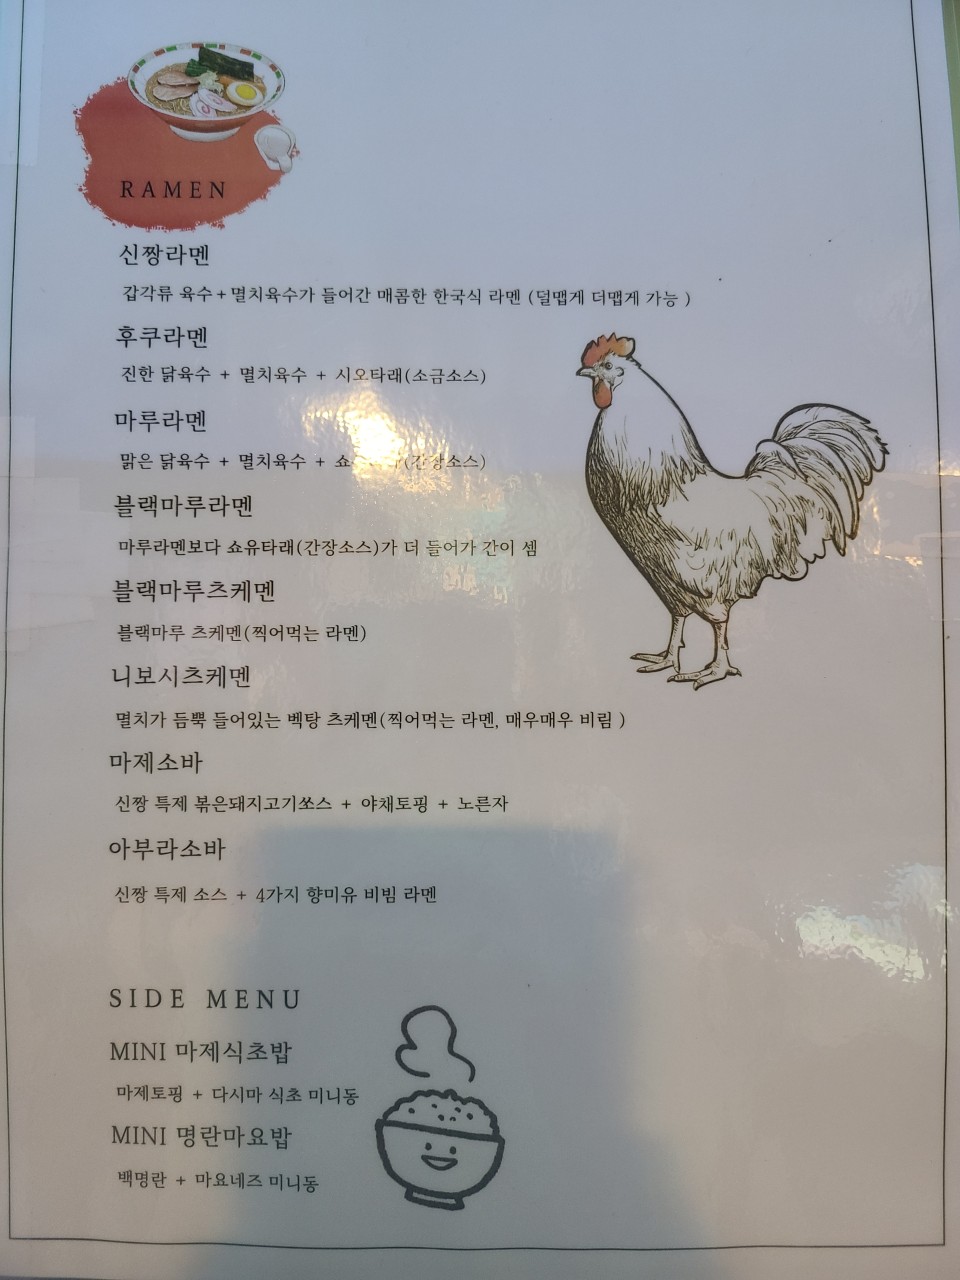 RAMEN
신짱라멘
갑각류 육수+멸치육수가 들어간 매콤한 한국식 라멘 (덜맵게 더맵게 가능 )
후쿠라멘
진한 닭육수 + 멸치육수 + 시오타래(소금소스)
마루라멘
맑은 닭육수 + 멸치육수 + (간장소스)
블랙마루라멘
마루라멘보다 쇼유타래(간장소스)가 더 들어가 간이 셈
블랙마루츠케멘
블랙마루 츠케멘(찍어먹는 라멘)
니보시츠케멘
멸치가 듬뿍 들어있는 벡탕 츠케멘(찍어먹는 라멘, 매우매우 비림 )
마제소바
신짱 특제 볶은돼지고기쏘스 + 야채토핑 + 노른자
아부라소바
신짱 특제 소스 + 4가지 향미유 비빔 라멘
SIDE MENU
MINI 마제식초밥
마제토핑 + 다시마 식초 미니동
MINI 명란마요밥
백명란 + 마요네즈 미니동